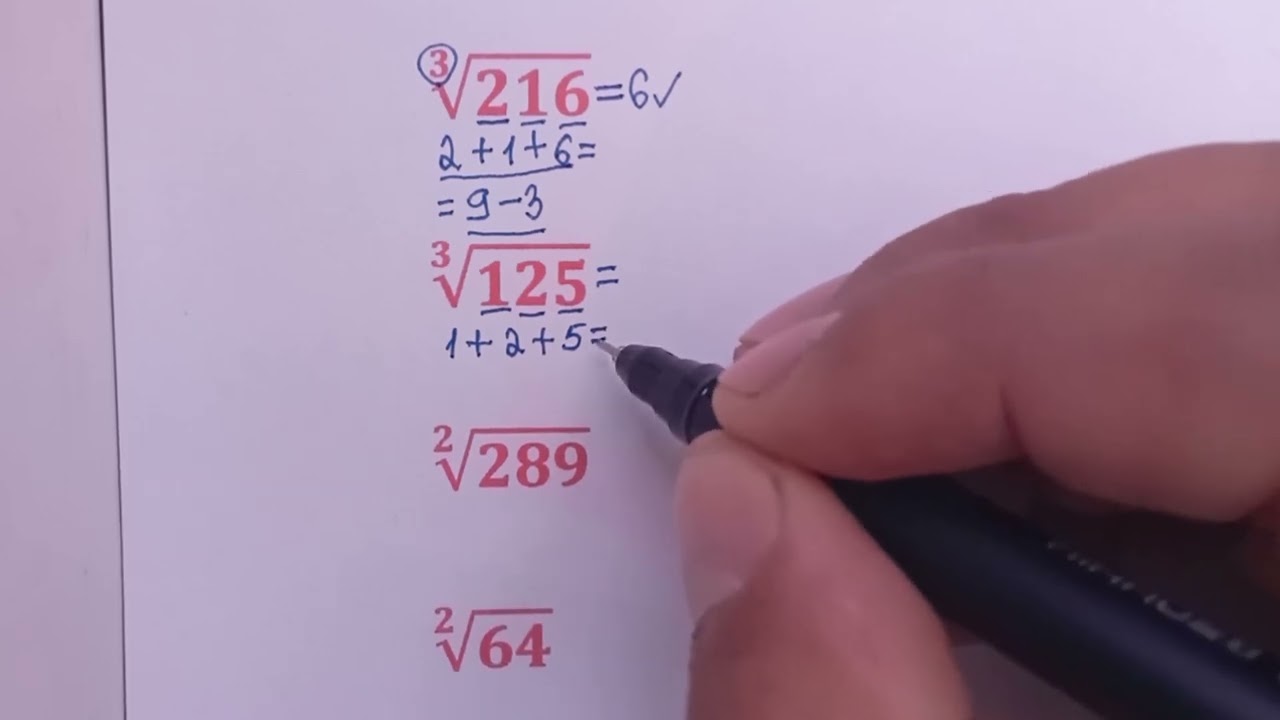 ∛216=6✓
2+1+6=
=9-3
∛125=
1+2+5=
²√289
²√64